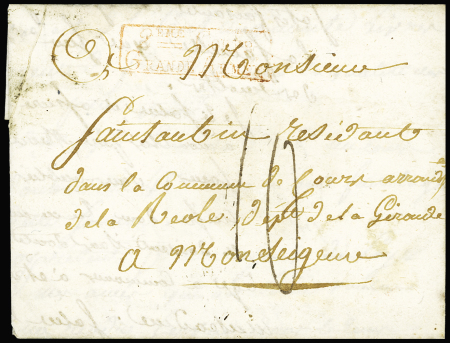 GRANDE
A Monsieur
Saintaubin residant
dans la Commune de Cours arrond
de la Reole, dept de la Gironde
a Monsegeur
10